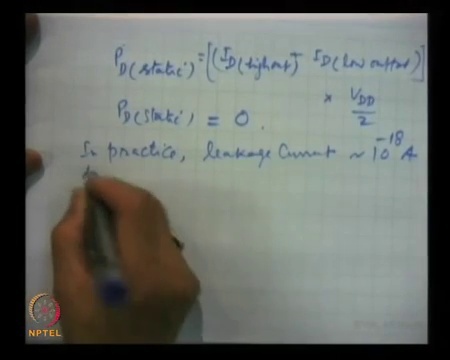 P_D(static) = [(I_D(high out) + I_D(low output)]
× V_DD/2
P_D(static) = 0.
In practice, leakage current ~ 10^-18 A
NPTEL